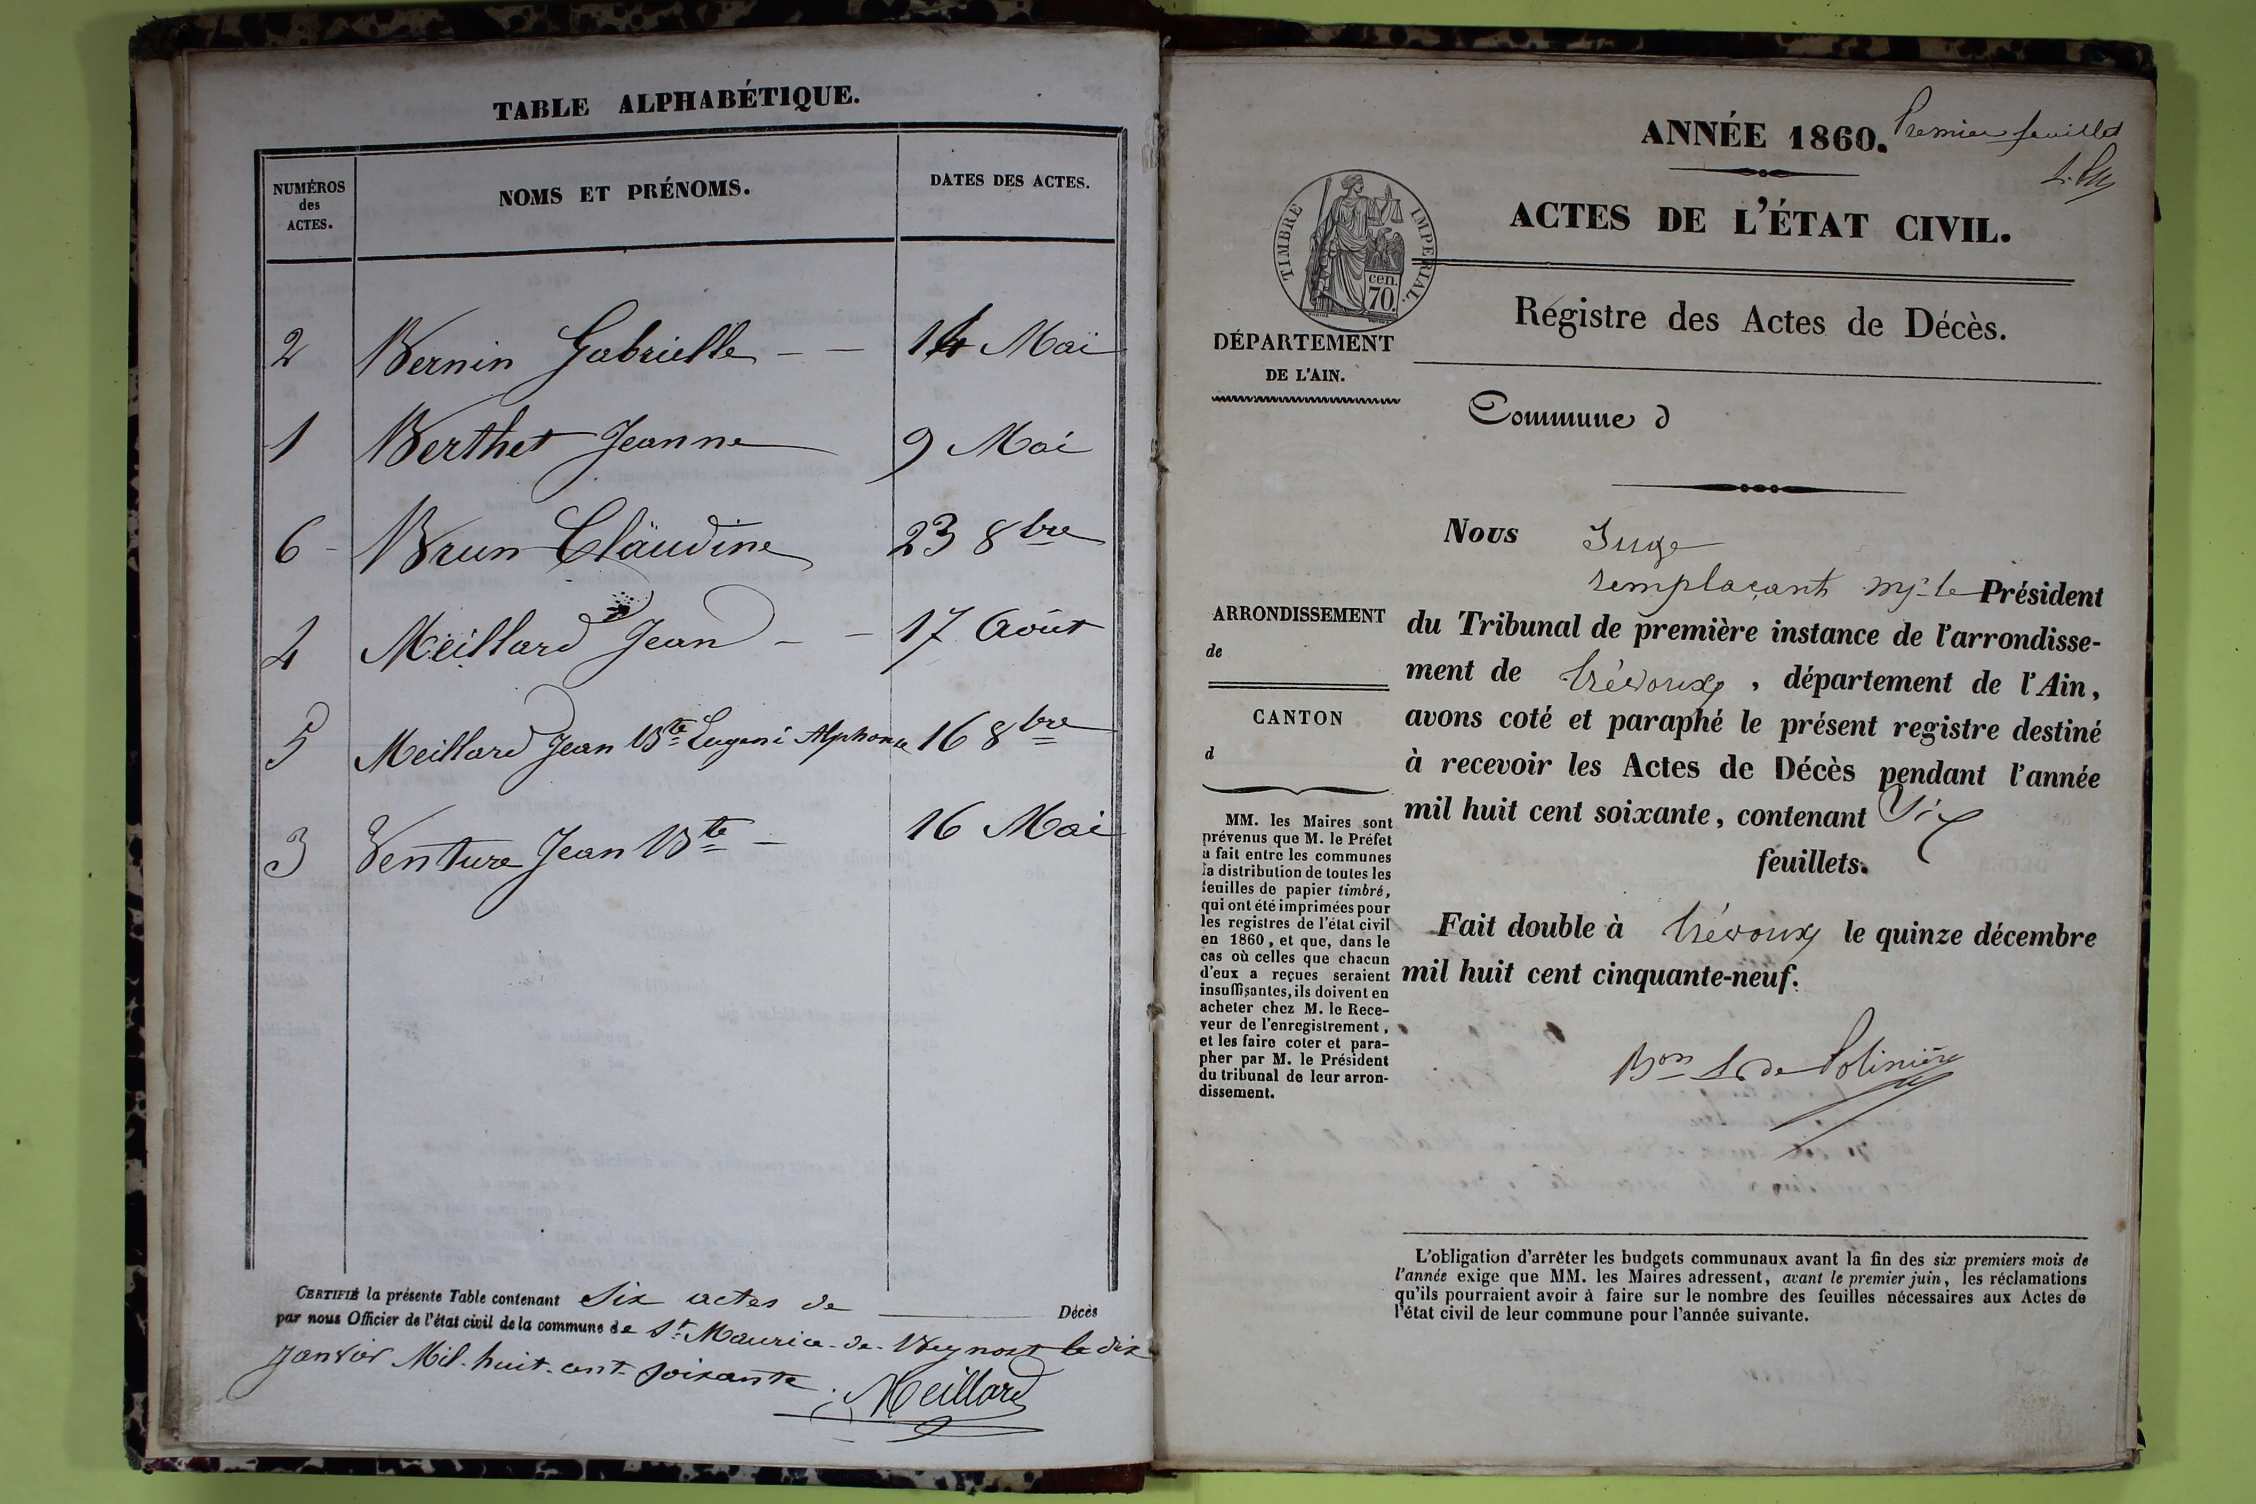 TABLE ALPHABÉTIQUE.
NUMÉROS des ACTES. NOMS ET PRÉNOMS. DATES DES ACTES.
2 Bernin Gabrielle - - 14 Mai
1 Berthet Jeanne 9 Mai
6 - Brun Claudine 23 8bre
4 Meillard Jean - - 17 Août
5 Meillard Jean Bte Eugène Alphonse 16 8bre
3 Venture Jean Bte - 16 Mai
CERTIFIÉ la présente Table contenant Six actes de Décès
par nous Officier de l'état civil de la commune de St Maurice-de-Beynost le dix
janvier Mil-huit-cent-soixante
Meillard
Premier feuillet
ANNÉE 1860.
ACTES DE L'ÉTAT CIVIL.
TIMBRE IMPÉRIAL.
cen.
70.
Régistre des Actes de Décès.
DÉPARTEMENT
DE L'AIN.
Commune d
ARRONDISSEMENT
de
CANTON
d
MM. les Maires sont
prévenus que M. le Préfet
a fait entre les communes
la distribution de toutes les
feuilles de papier timbré,
qui ont été imprimées pour
les registres de l'état civil
en 1860, et que, dans le
cas où celles que chacun
d'eux a reçues seraient
insuffisantes, ils doivent en
acheter chez M. le Rece-
veur de l'enregistrement,
et les faire coter et para-
pher par M. le Président
du tribunal de leur arron-
dissement.
Nous Juge
remplaçant Mr le Président
du Tribunal de première instance de l'arrondisse-
ment de Trévoux, département de l'Ain,
avons coté et paraphé le présent registre destiné
à recevoir les Actes de Décès pendant l'année
mil huit cent soixante, contenant Six
feuillets.
Fait double à Trévoux le quinze décembre
mil huit cent cinquante-neuf.
Bon de Polinière
L'obligation d'arrêter les budgets communaux avant la fin des six premiers mois de
l'année exige que MM. les Maires adressent, avant le premier juin, les réclamations
qu'ils pourraient avoir à faire sur le nombre des feuilles nécessaires aux Actes de
l'état civil de leur commune pour l'année suivante.